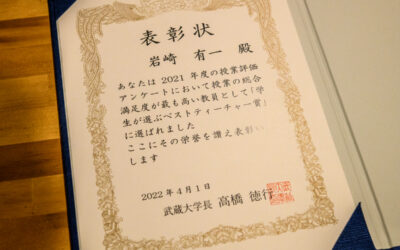 表彰状
岩崎 有一 殿
あなたは 2021 年度の授業評価
アンケートにおいて授業の総合
満足度が最も高い教員として「学
生が選ぶベストティーチャー賞」
に選ばれました
ここにその栄誉を讃え表彰い
します
2022 年 4 月 1 日
武蔵大学長 高橋 徳行